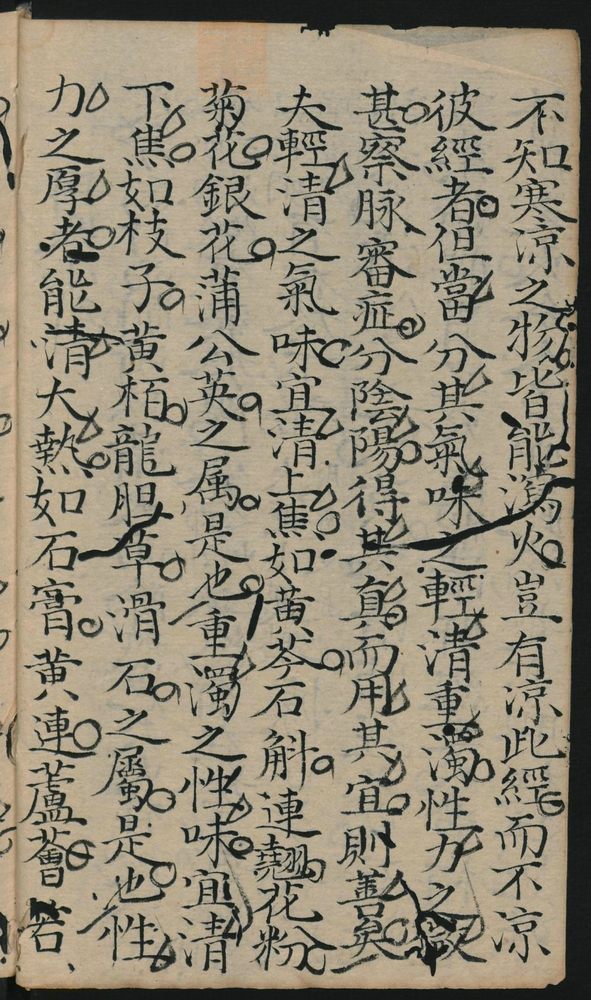 不知寒涼之物皆能瀉火豈有涼此經而不涼
彼經者但當分其氣味之輕清重濁性力之
甚察脉審症分陰陽得其真而用其宜則善矣
夫輕清之氣味宜清上焦如黃芩石斛連翹花粉
菊花銀花蒲公英之属是也重濁之性味宜清
下焦如枝子黃栢龍胆草滑石之屬是也性
力之厚者能清大熱如石膏黃連蘆薈苦